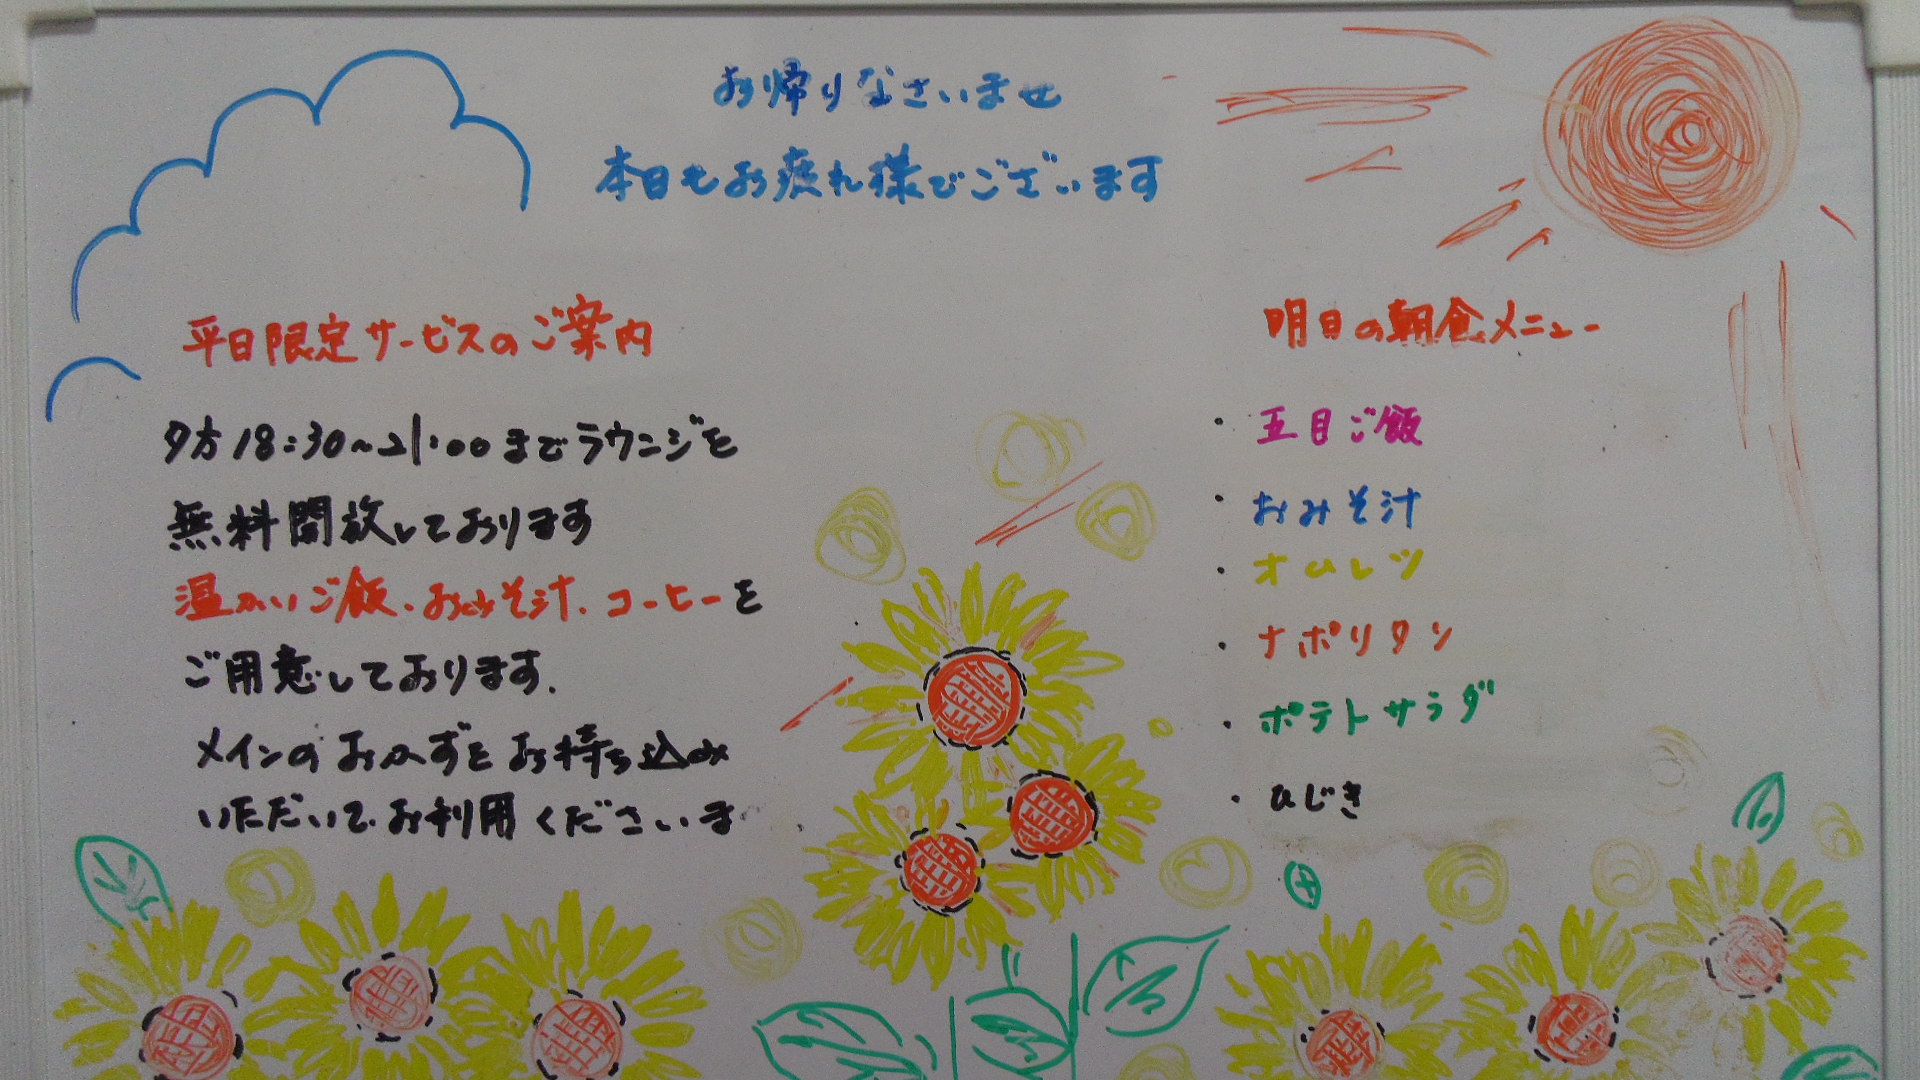 お帰りなさいませ
本日もお疲れ様でございます
平日限定サービスのご案内
夕方18:30~21:00までラウンジを
無料開放しております
温かいご飯、おみそ汁、コーヒーを
ご用意しております。
メインのおかずをお持ち込み
いただいて、お利用くださいま
明日の朝食メニュー
・五目ご飯
・おみそ汁
・オムレツ
・ナポリタン
・ポテトサラダ
・ひじき